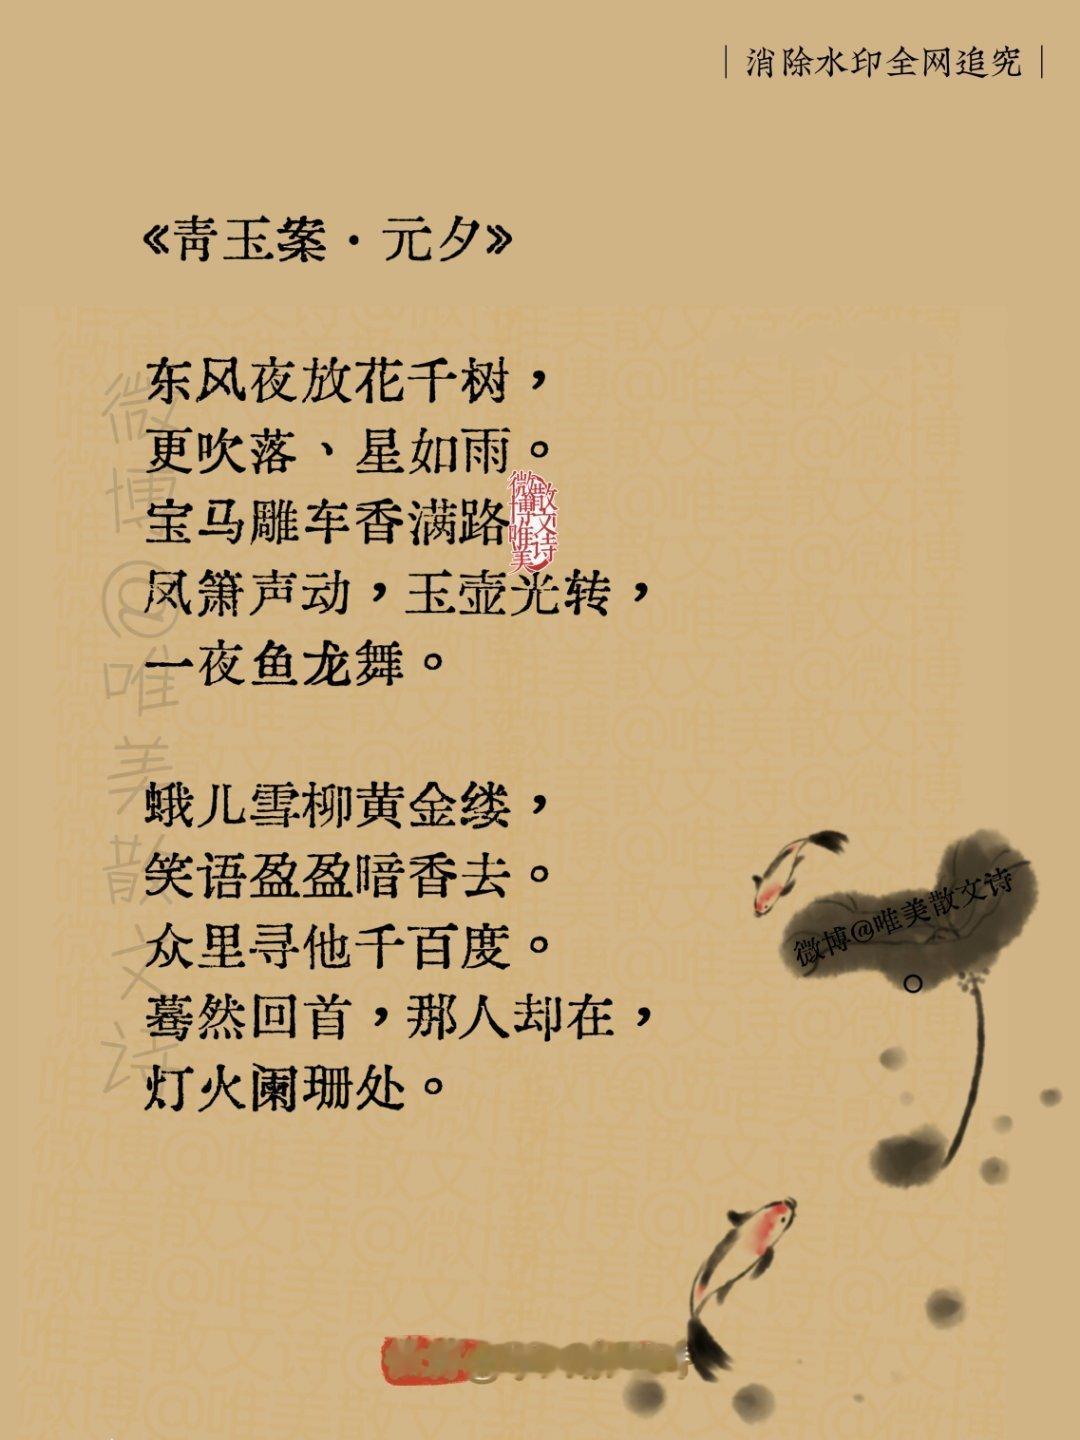 ｜消除水印全网追究｜
《青玉案·元夕》
东风夜放花千树，
更吹落、星如雨。
宝马雕车香满路
凤箫声动，玉壶光转，
一夜鱼龙舞。
蛾儿雪柳黄金缕，
笑语盈盈暗香去。
众里寻他千百度。
蓦然回首，那人却在，
灯火阑珊处。
微博唯美
散文诗
微博@唯美散文诗
微博@唯美散文诗